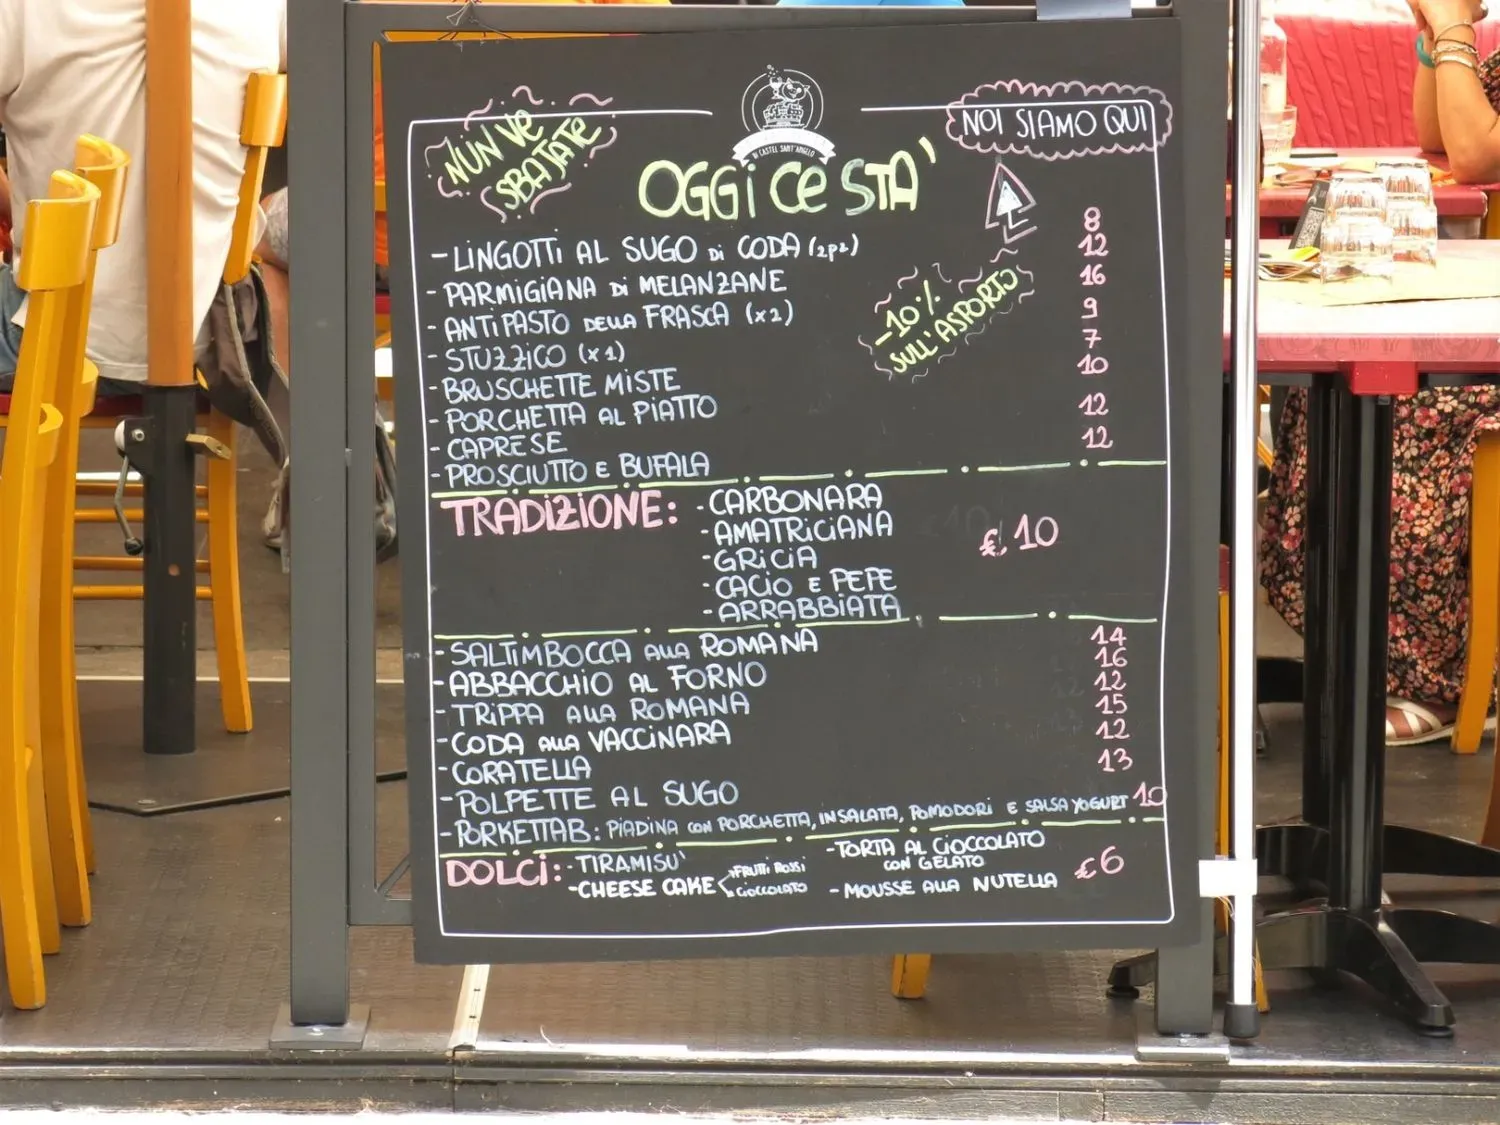 NUN VE
SBATATE
DI CASTEL SANT'ANGELO
OGGI CE STA'
NOI SIAMO QUI
- LINGOTTI AL SUGO DI CODA 8
- PARMIGIANA DI MELANZANE 12
- ANTIPASTO DELLA FRASCA (x2) 16
- STUZZICO (x1) 9
- BRUSCHETTE MISTE 7
- PORCHETTA AL PIATTO 10
- CAPRESE 12
- PROSCIUTTO E BUFALA 12
-10%
SULL'ASPORTO
TRADIZIONE: - CARBONARA
- AMATRICIANA
- GRICIA
- CACIO E PEPE
- ARRABBIATA
€ 10
- SALTIMBOCCA ALLA ROMANA 14
- ABBACCHIO AL FORNO 16
- TRIPPA ALLA ROMANA 12
- CODA ALLA VACCINARA 15
- CORATELLA 12
- POLPETTE AL SUGO 13
- PORKETTAB: PIADINA CON PORCHETTA, INSALATA, POMODORI E SALSA YOGURT 10
DOLCI: - TIRAMISU'
- CHEESE CAKE FRUTTI ROSSI
CIOCCOLATO
- TORTA AL CIOCCOLATO
CON GELATO
- MOUSSE ALLA NUTELLA
€ 6